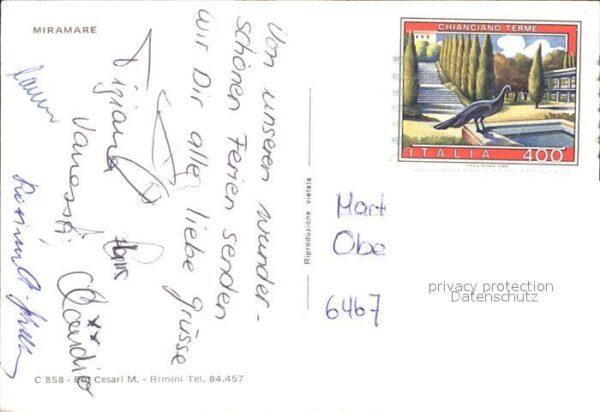 MIRAMARE
Von unseren wunder-
schönen Ferien senden
wir Dir alle liebe Grüsse
Tiziana
Vanessa
Claudio
CHIANCIANO TERME
ITALIA 400
Riproduzione vietata
Mart
Obe
6467
privacy protection
Datenschutz
C 858 - Ed. Cesari M. - Rimini Tel. 84.457